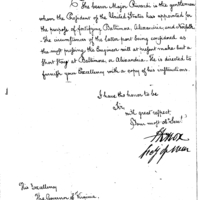 The bearer Major Rivardi is the gentleman
whom the President of the United States has appointed for
the purpose of fortifying Baltimore, Alexandria and Norfolk.
The circumstances of the latter port being considered as
the most pressing the Engineer will at present make but a
short stay at Baltimore, or Alexandria. He is directed to
furnish your Excellency with a copy of his instructions.
I have the honor to be
Sir
with great respect
Your most ob Serv
H Knox
Secy of War
His Excellency
The Governor of Virginia